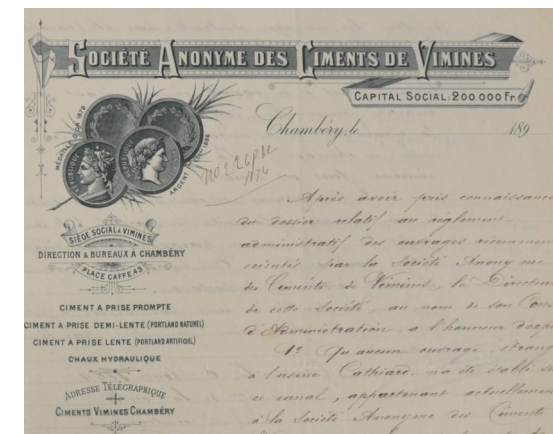 SOCIÉTÉ ANONYME DES CIMENTS DE VIMINES
CAPITAL SOCIAL: 200.000 Fr.
Chambéry, le 189
RÉPUBLIQUE
SIÈGE SOCIAL A VIMINES
DIRECTION & BUREAUX A CHAMBÉRY
PLACE CAFFE. 43
CIMENT A PRISE PROMPTE
CIMENT A PRISE DEMI-LENTE (PORTLAND NATUREL)
CIMENT A PRISE LENTE (PORTLAND ARTIFICIEL)
CHAUX HYDRAULIQUE
ADRESSE TÉLÉGRAPHIQUE
CIMENTS VIMINES CHAMBÉRY
Après avoir pris connaissance
du dossier relatif au règlement
administratif des ouvrages
exécutés par la Société Anonyme
des Ciments de Vimines, le Directeur
de cette Société, au nom de son Con
d'Administration a l'honneur
1° Qu'aucun ouvrage, étrang
à l'usine Cathiard, n'a été établi s
ce canal, appartenant actuellemen
à la Société Anonyme des Ciments